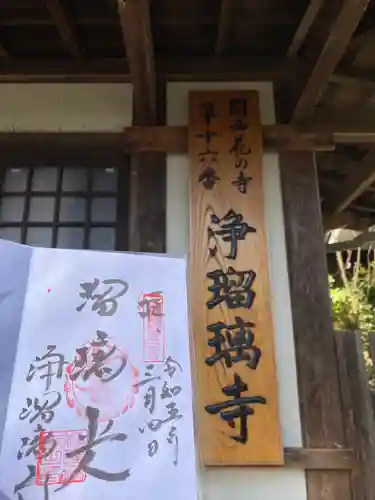 関西花の寺
第十六番
浄瑠璃寺
奉拝
令和五年
三月四日
瑠璃光
浄瑠璃寺